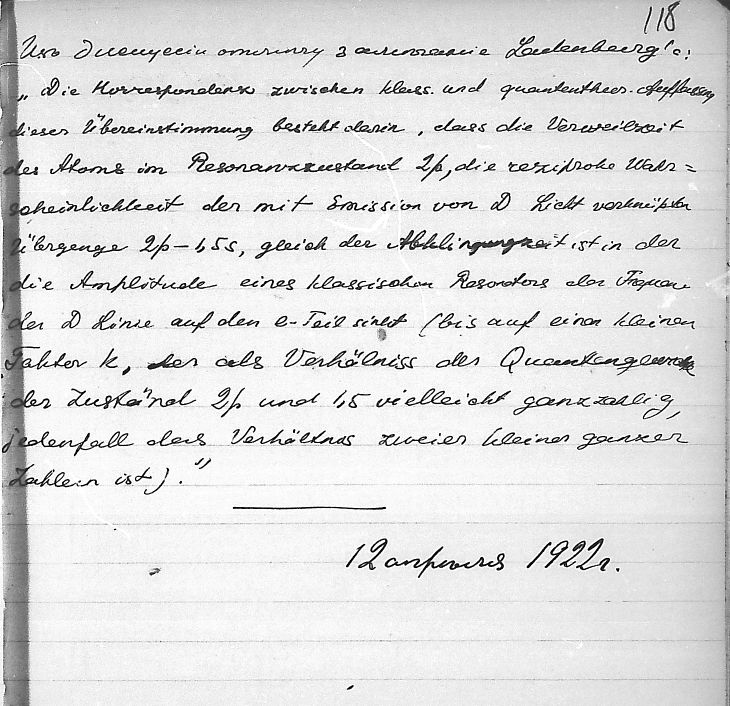 118
Изъ диссусіи отмечу замечание Ladenburg'а:
„Die Korrespondenz zwischen klass. und quantentheor. Auffassung
dieser Übereinstimmung besteht darin, dass die Verweilzeit
des Atoms im Resonanzzustand 2p, die reziproke Wahr=
scheinlichkeit der mit Emission von D Licht verknüpften
Übergenge 2p–1,5s, gleich der Abklingungszeit ist in der
die Amplitude eines klassischen Resonators der Frequenz
der D Linie auf den e-Teil sinkt (bis auf einen kleinen
Faktor k, der als Verhälniss der Quantengewichte
der Zuständ 2p und 1,5 vielleicht ganzzahlig,
jedenfall das Verhältnis zweier kleiner ganzer
Zahlen ist)."
12 апреля 1922 г.